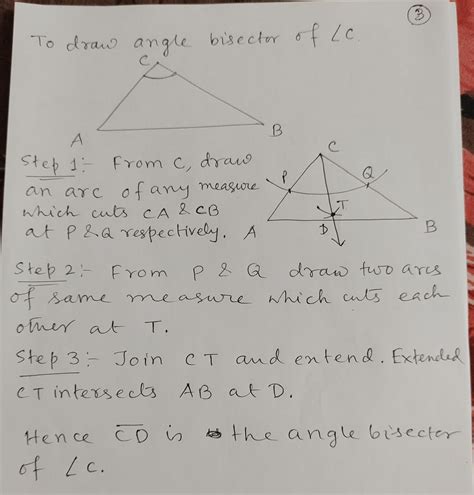 3
To draw angle bisector of ∠C.
C
A
B
Step 1:- From C, draw
an arc of any measure
which cuts CA & CB
at P & Q respectively.
C
P
Q
T
A
D
B
Step 2:- From P & Q draw two arcs
of same measure which cuts each
other at T.
Step 3:- Join CT and extend. Extended
CT intersects AB at D.
Hence C̅D̅ is the angle bisector
of ∠C.